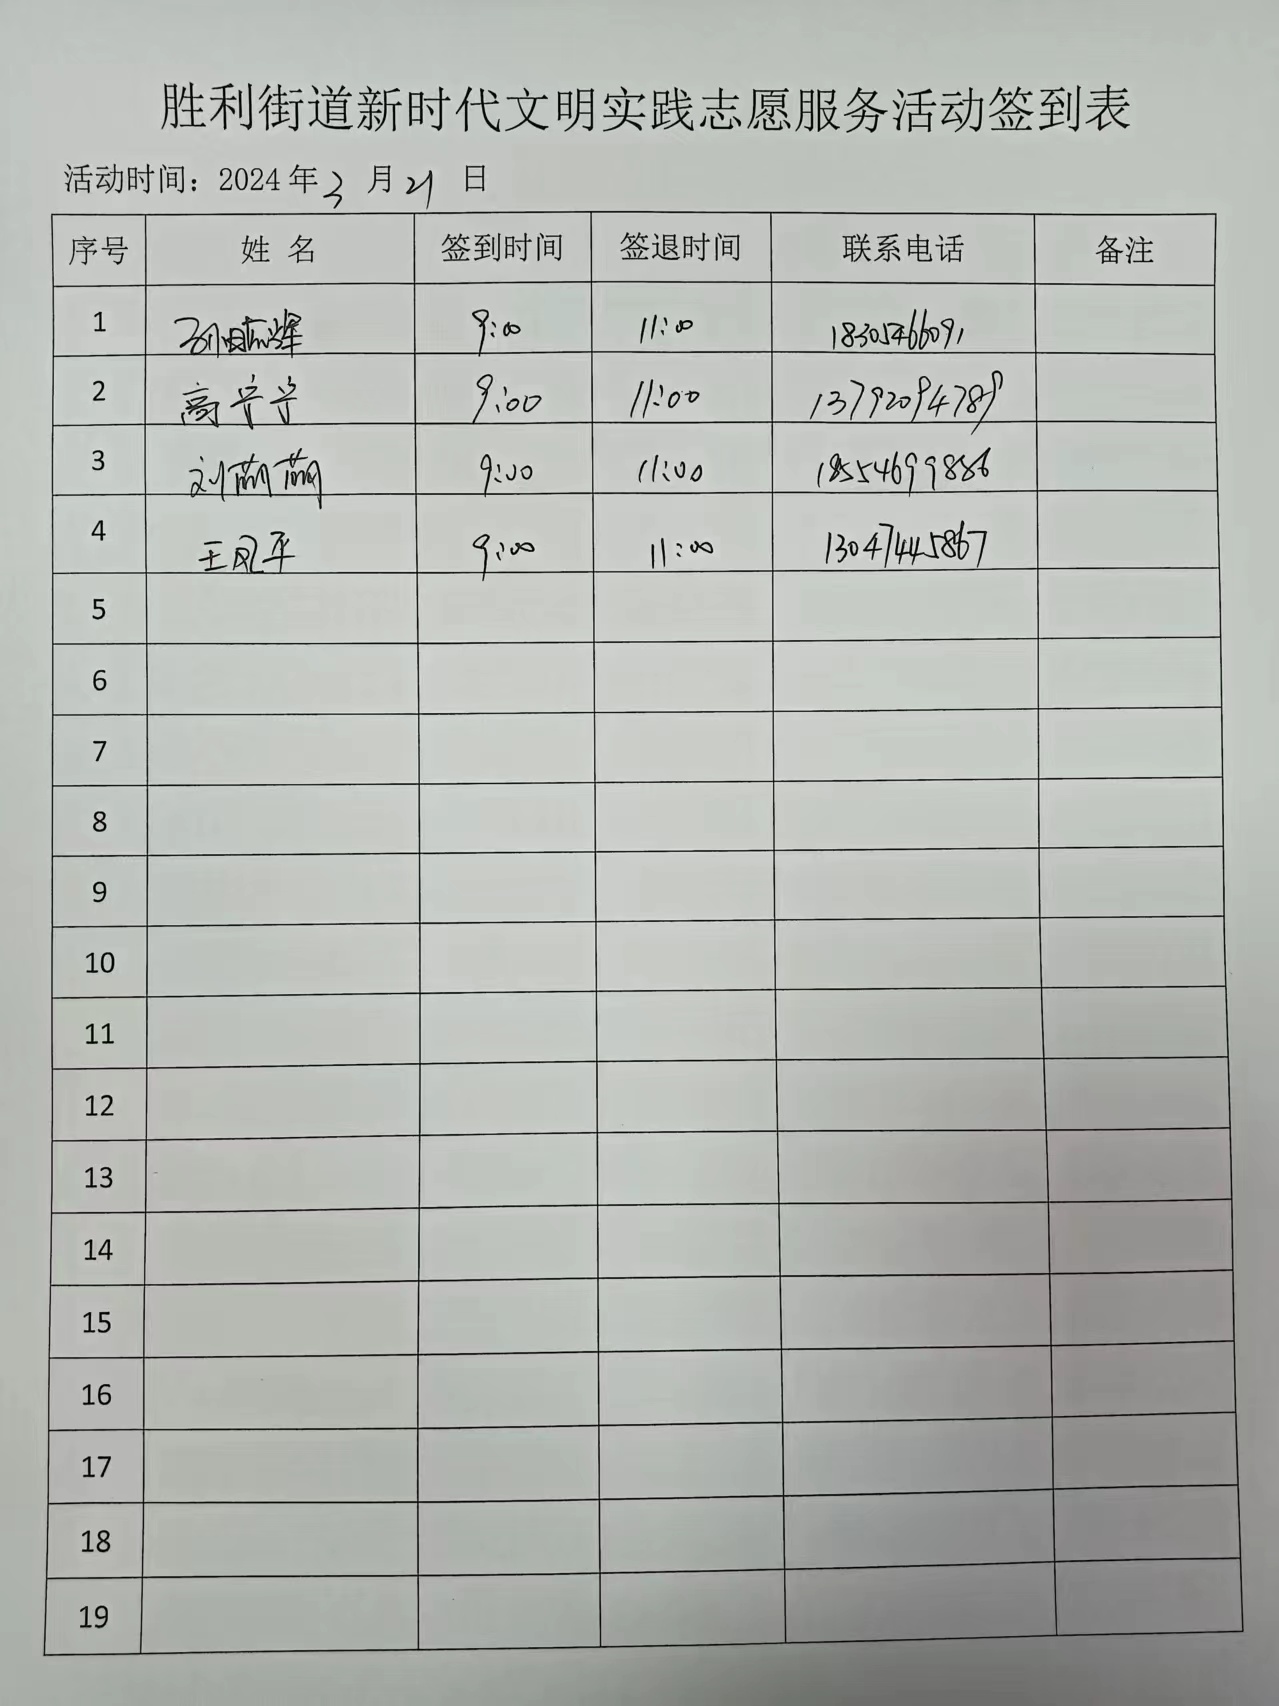 胜利街道新时代文明实践志愿服务活动签到表
活动时间：2024年3月21日
序号 姓 名 签到时间 签退时间 联系电话 备注
1 9:00 11:00 18305466091
2 高宁宁 9:00 11:00 13792094789
3 刘 9:00 11:00 18554699886
4 王风平 9:00 11:00 13047445867
5
6
7
8
9
10
11
12
13
14
15
16
17
18
19